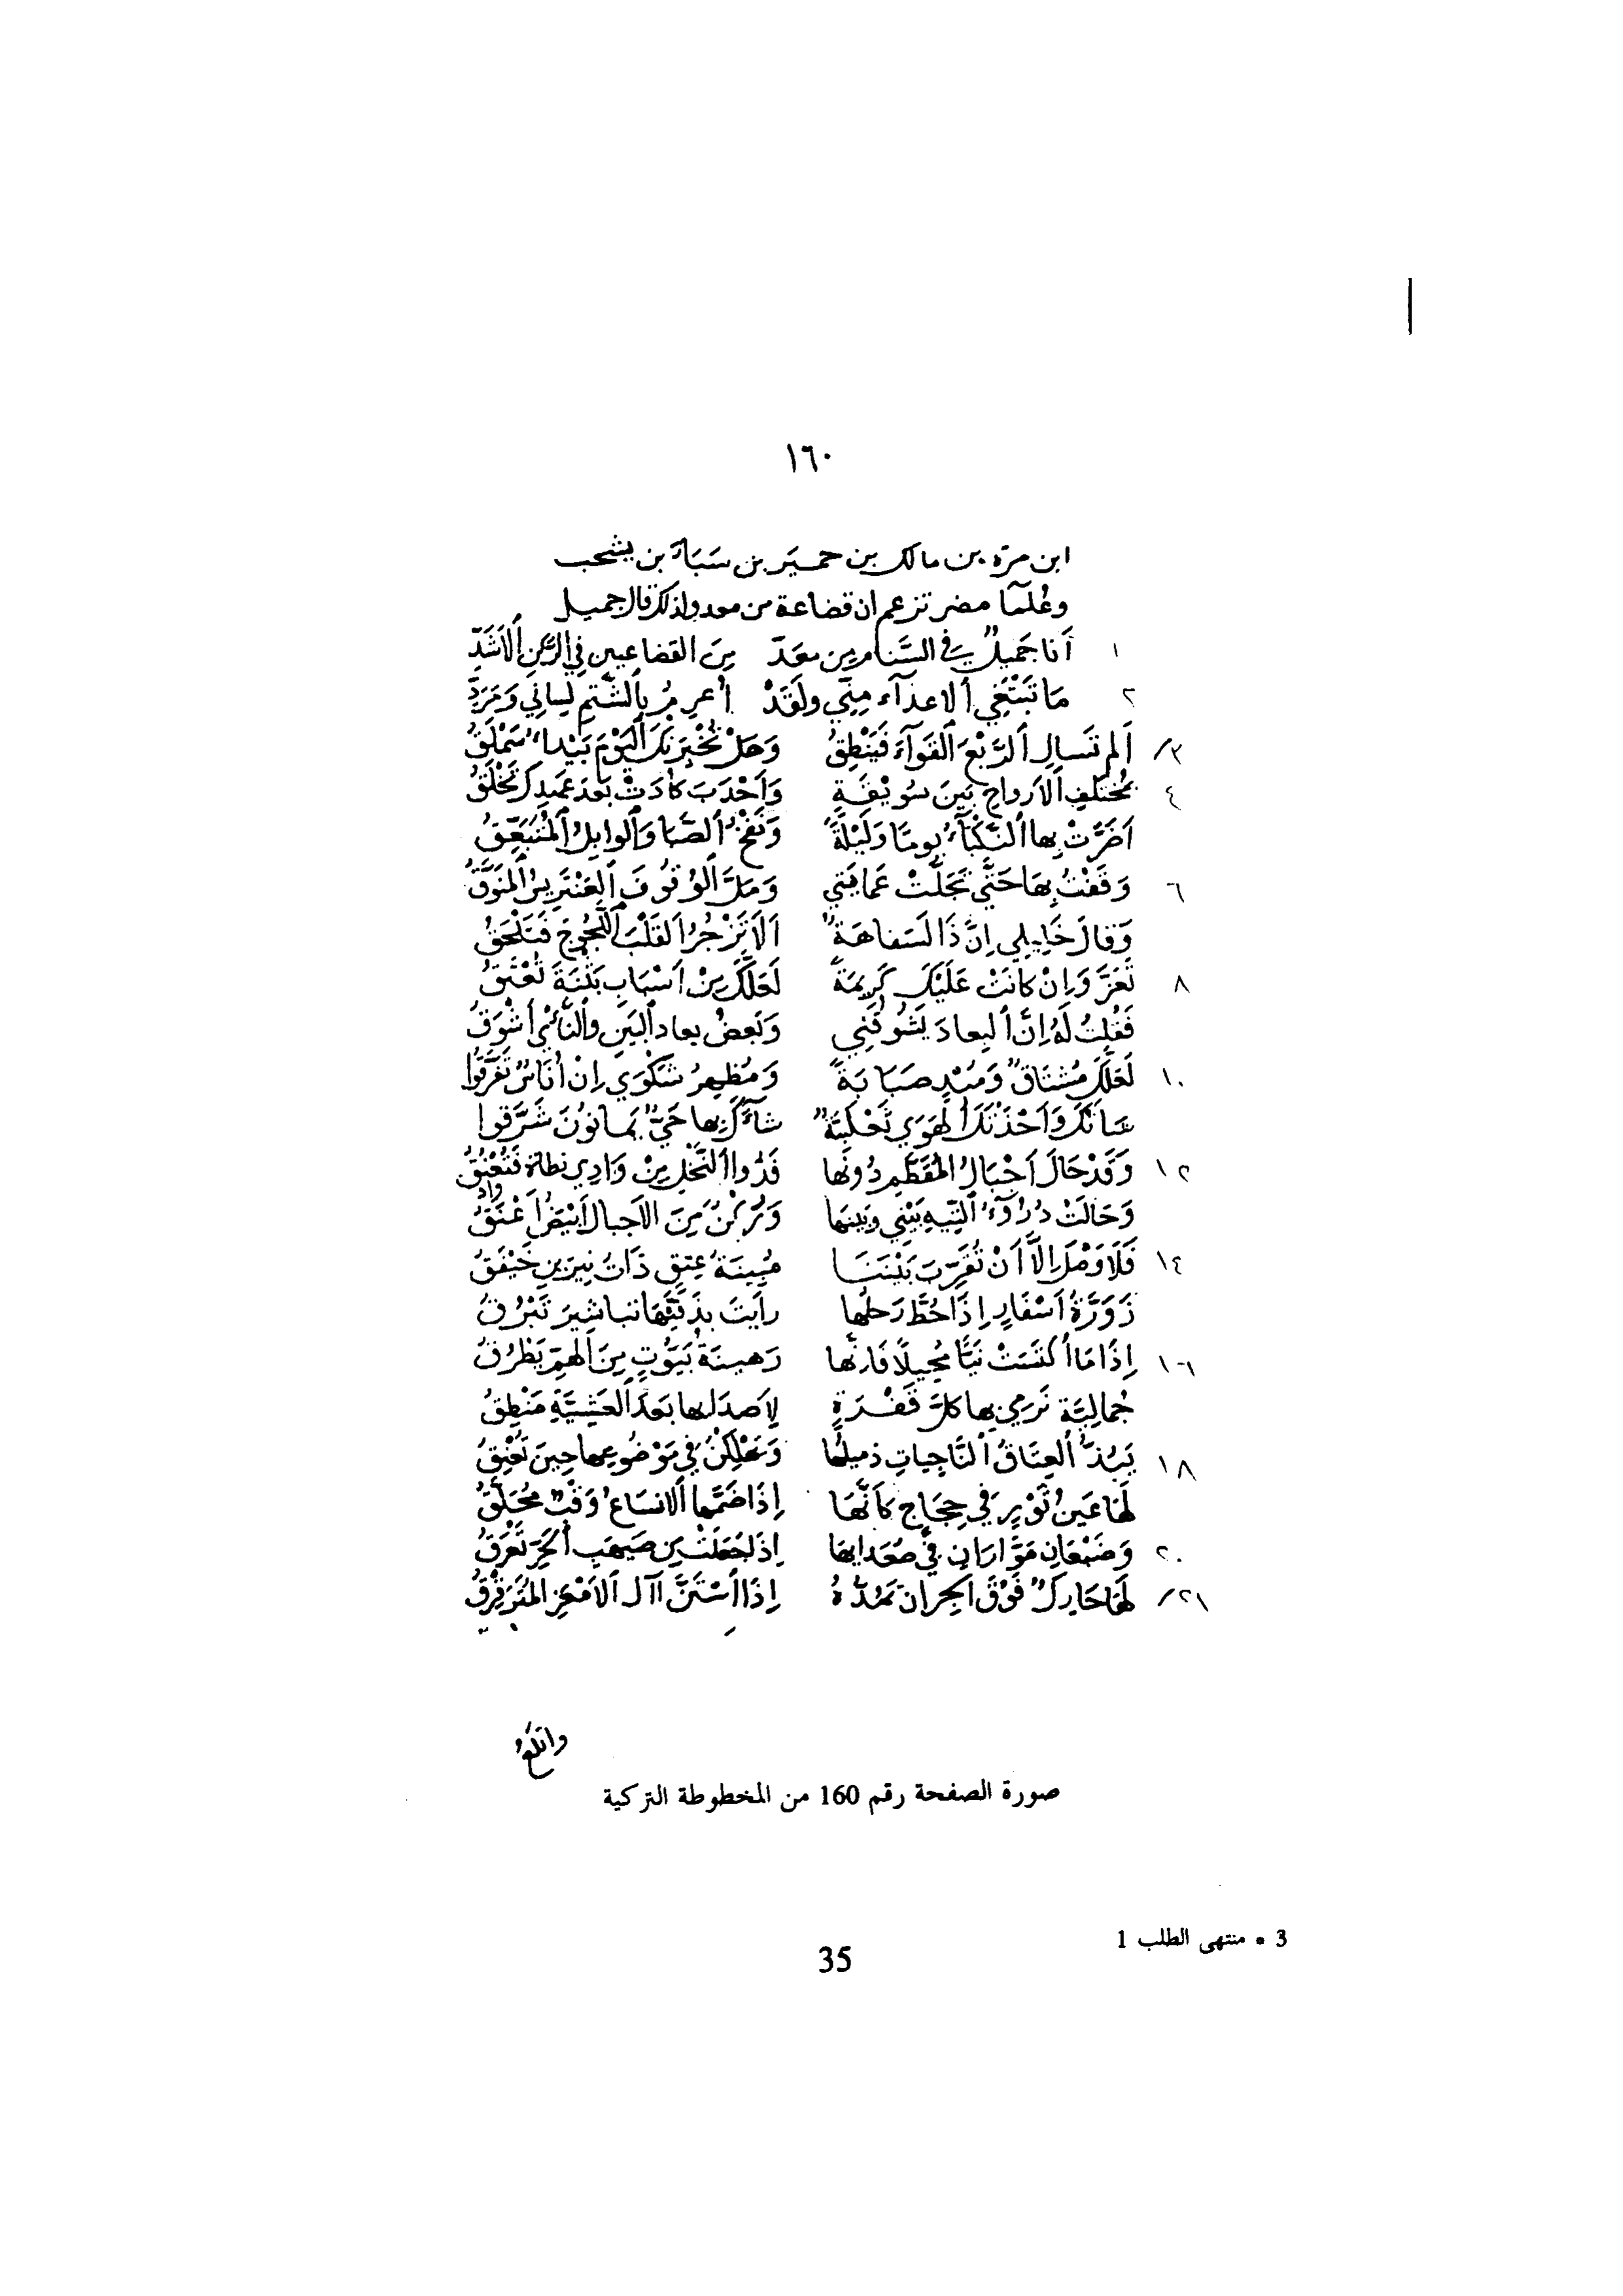 ١٦٠
ابن مرة بن مالك بن حمير بن سبأ بن يشجب
وعُلمآ مضر تزعم ان قضاعة من معد ولذلك قال جميل
١ أَنا جَميلٌ في السَّنامِ مِن معَدّ مِنَ القضاعيين في الرُّكنِ الأَشَدّ
٢ مَا تَبْتَغِي الاعدآء مِنِّي ولَقَدْ أُعرِمُ بِالشَّتمِ لِسانِي وَمَرَدّ
٣/ أَلم تَسالِ الرَّبْعَ القوآءَ فَيَنْطِقُ وَهَلْ تُخْبِرَنْكَ اليَوْمَ بَيْداءُ سَمْلَقُ
٤ بمُختَلَفِ الأرواحِ بَينَ سُوَيْقَةٍ وَأَحْدَبَ كادَتْ بَعدَ عَهدِكَ تَخْلَقُ
أَضَرَّتْ بِها النَّكْبآءُ يوماً وَلَيْلَةً وَنَفْخُ الصَّبا وَالوابِلُ المُتَبَعِّقُ
٦ وَقَفْتُ بِهَا حَتَّى تَجَلَّتْ عَمايَتي وَمَلَّ الوُقُوفَ العَنْتَرِيسُ المُنَوَّقُ
وَقالَ خَلِيلِي إِنَّ ذَا لَسَفاهَةٌ أَلَا تَزْجُرُ القَلْبَ اللَّجُوجَ فَتَلْحَقُ
٨ تَعَزَّ وَإِنْ كانَتْ عَلَيْكَ كَرِيمَةً لَعَلَّكَ مِنْ أَسْبَابِ بَثْنَةَ تُعْتَقُ
فَقُلتُ لَهُ إِنَّ البِعادَ يَشُوقُنِي وَبَعضُ بعادِ البَينِ والنَّأْيِ أَشْوَقُ
١٠ لَعَلَّكَ مُشْتاقٌ وَمُبْدٍ صَبَابَةً وَمُظهِرُ شَكْوَي إِنْ أُنَاسٌ تَفَرَّقُوا
شآءَكَ بِها حَيٌّ يمانونَ شَرَّقوا
١٢ وَقَدْ حَالَ أَجْبَالُ المُقَطَّمِ دُونَها فَذُو النَّخْلِ مِنْ وَادِي نطاة فَتُعْنِقُ
وَحَالَتْ دُرُوآءُ التِّيهِ بَيْنِي وبَينَها وَرُكنٌ مِنَ الأَجبالِ أَبْيَضُ أَعْنَقُ
واد
١٤ فَلَا وَصْلَ إِلَّا أَنْ تُقَرِّبَ بَيْنَنَا مُبِينَةُ عِتقٍ ذَاتُ نِيرَينِ خَيْفَقُ
زَوَرَّةُ أَسْفَارٍ إِذَا حُطَّ رَحلُها رأَيتَ بِذِفَّيْها تباشيرَ تَبْرُقُ
١٦ إِذَا مَا اكْتَسَتْ نَيّاً مُحِيلاً فَإِنّها رَهِينَةُ بَيُّوتٍ مِنَ الهَمِّ يَطْرُقُ
جُمالِيَّة نَرمي بها كلَّ قَفْرَةٍ لِأَصدائِها بَعدَ العَشِيَّةِ مَنْطِقُ
١٨ يَبُذُّ العِتَاقُ النَّاجِياتِ ذميلُها وَتَهْلِكْنُ في مَوْضُوعِها حِينَ تُعْنِقُ
لَها عَينُ ثَوْرٍ في حِجَاجٍ كَأَنَّهَا إِذَا ضَمَّها الأنساعُ وَقْبٌ مُحَلَّقُ
٢٠ وَضَبْعَانِ مَوَّارَانِ في صُعَدايهَا إِذَا جَعَلَتْ مِن صَيهَبِ الحَرِّ تَعْرَقُ
٢١/ لَها حَارِكٌ فَوْقَ الجِران تَمُدُّهُ إِذَا اسْتَنَّ آلُ الأَمْعَزِ المُتَرَقْرِقُ
واتلعُ
صورة الصفحة رقم 160 من المخطوطة التركية
3 * منتهى الطلب 1
35